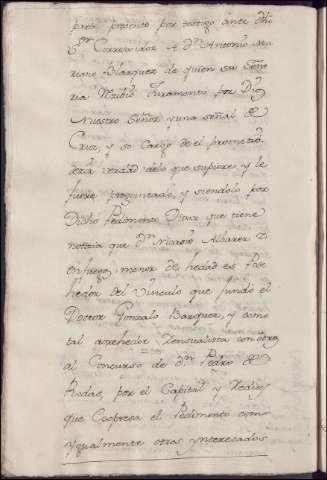 para presento por testigo ante dho
Sor Correxidor A dn Antonio Ma
riano Blazquez de quien su Seño
ria Recibio Juramento por Dios
Nuestro Señor y una señal de
Cruz, y so cargo de el prometio
decir verdad delo que supiere y le
fuere preguntado, y siendolo por
Dicho Pedimento Dixo que tiene
noticia que dn Nicasio Albarez
menor de hedad es Pose
hedor del Vinculo que fundo el
Doctor Gonzalo Bazquez, y como
tal acrehedor Zensualista con otros
al Concurso de dn Pedro de
Rodas, por el Capital y Reditos
que Expresa el Pedimento como
ygualmente otros ynteresados